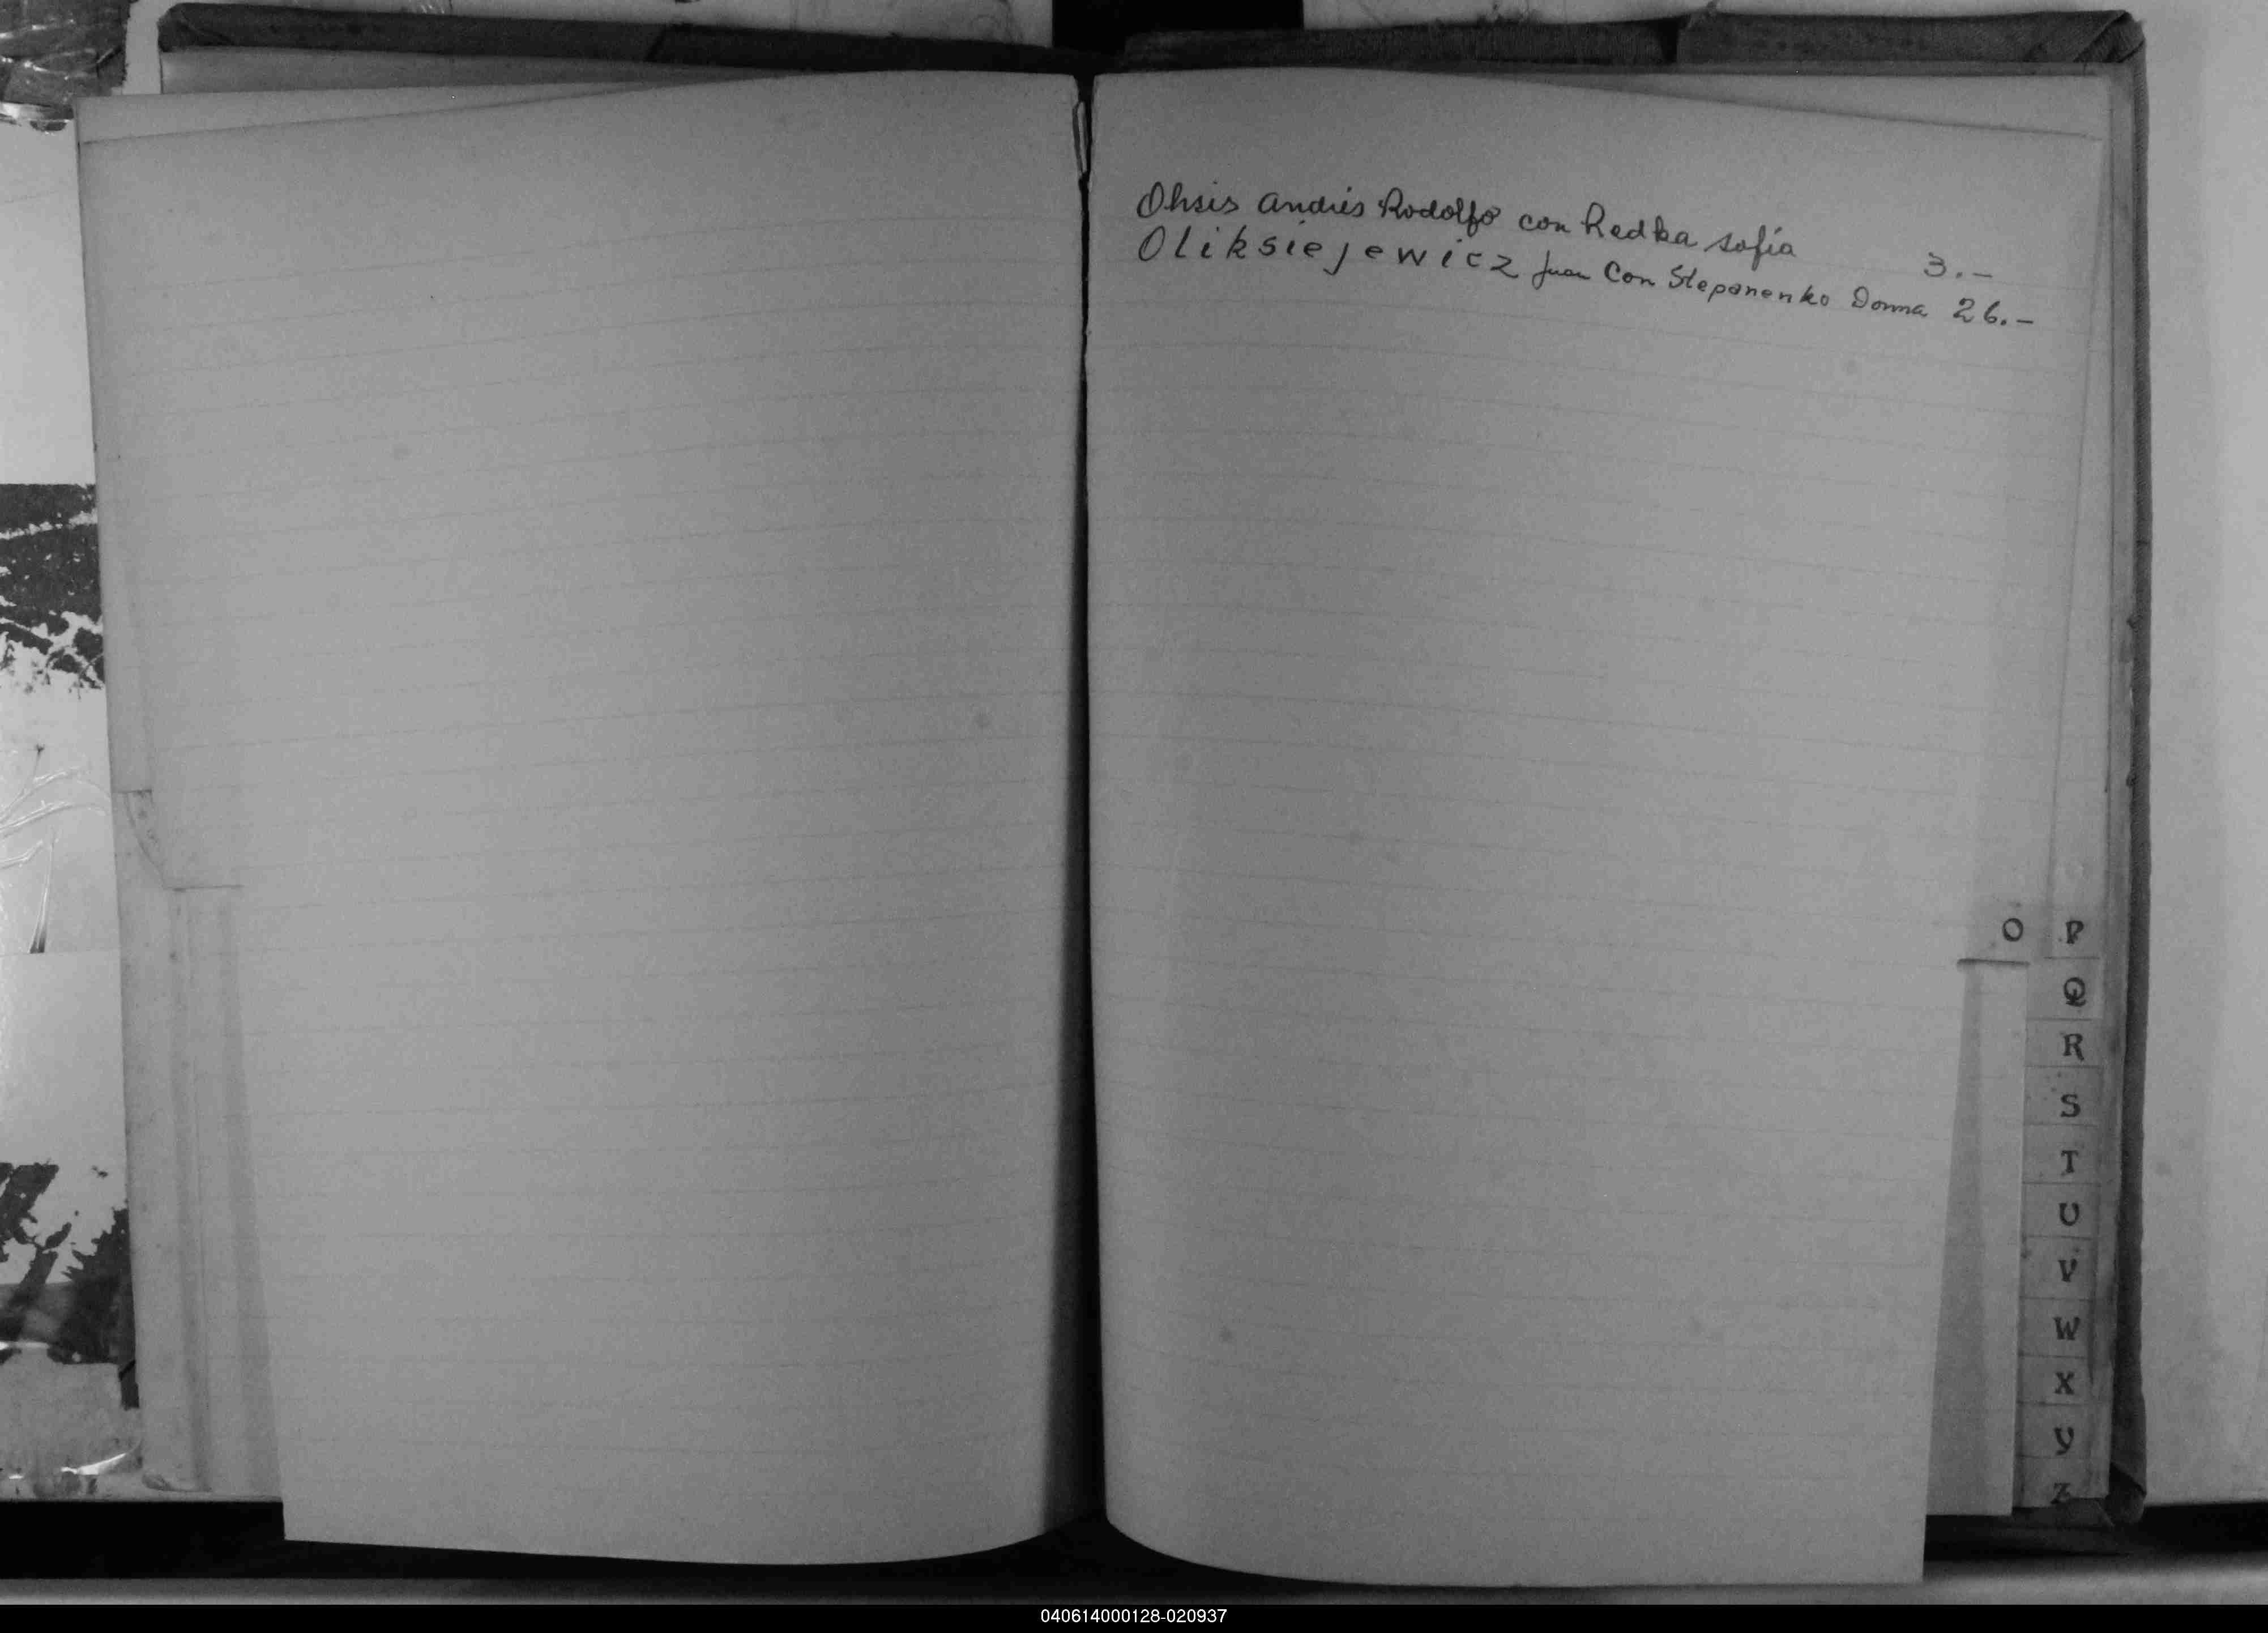 Ohsis Andrés Rodolfo con Redka Sofía 3.-
Oliksiejewicz Juan Con Stepanenko Donna 26.-
O
P
Q
R
S
T
U
V
W
X
Y
Z
040614000128-020937